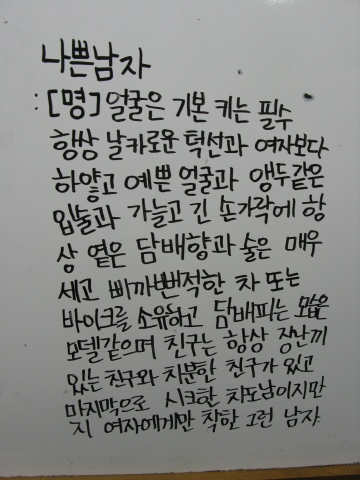 나쁜남자
: [명] 얼굴은 기본 키는 필수
항상 날카로운 턱선과 여자보다
하얗고 예쁜 얼굴과 앵두같은
입술과 가늘고 긴 손가락에 항
상 옅은 담배향과 술은 매우
세고 삐까뻔적한 차 또는
바이크를 소유하고 담배피는 모습은
모델같으며 친구는 항상 장난끼
있는 친구와 차분한 친구가 있고
마지막으로 시크한 차도남이지만
지 여자에게만 착한 그런 남자